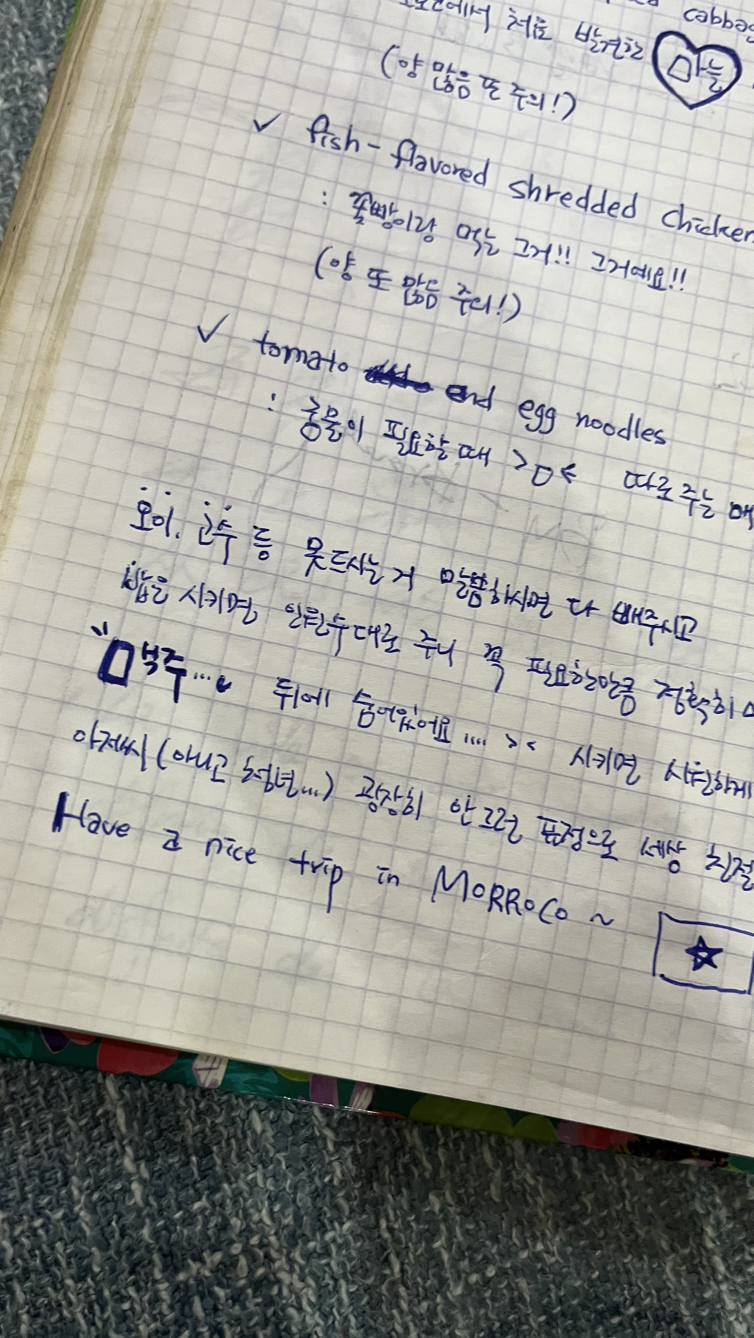 cabbag
에서 처음 발견한 마늘
(양 많음 또 주의!)
✓ fish-flavored shredded chicken
: 꽃빵이랑 먹는 그거!! 그거예요!!
(양 또 많음 주의!)
✓ tomato and egg noodles
: 국물이 필요할 때 >ㅁ< 따로 주는
오이, 고수 등 못드시는 거 말씀하시면 다 빼주시고
밥을 시키면, 인원수대로 주니 꼭 필요한만큼 정확히
"맥주"... 뒤에 숨어있어요.... >< 시키면 시원하게
아저씨(아니고 청년...) 굉장히 안 그런 표정으로 세상 친절
Have a nice trip in MORROCO ~